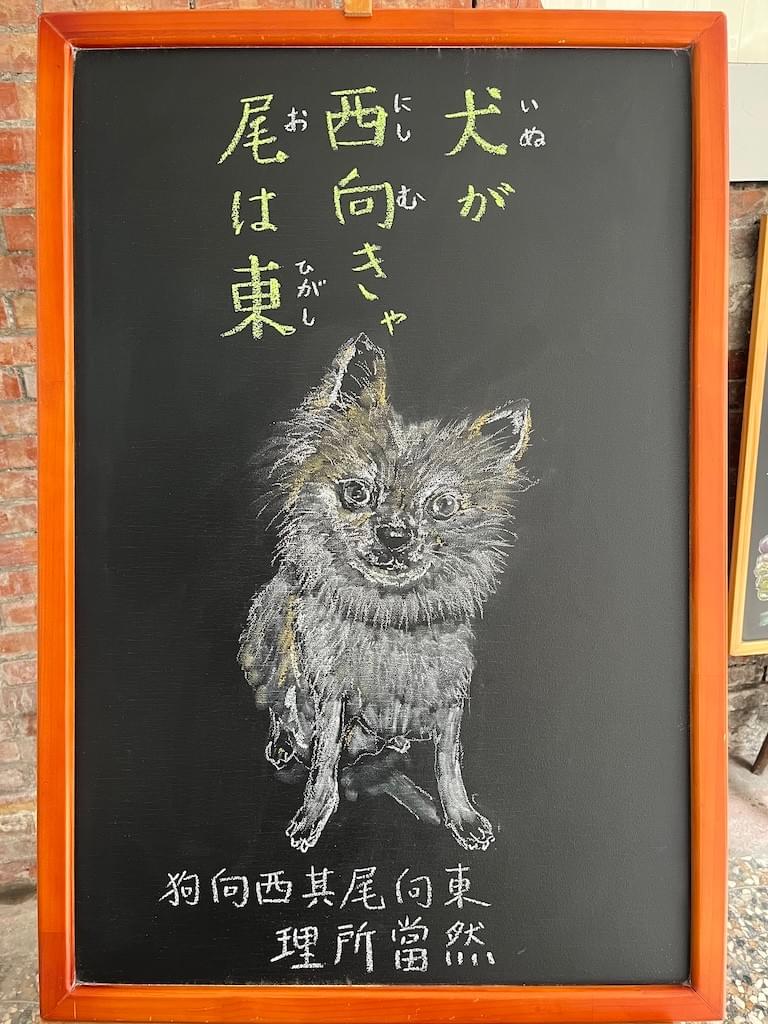 犬が
西向きゃ
尾は東
いぬ
にし
む
お
ひがし
狗向西其尾向東
理所當然